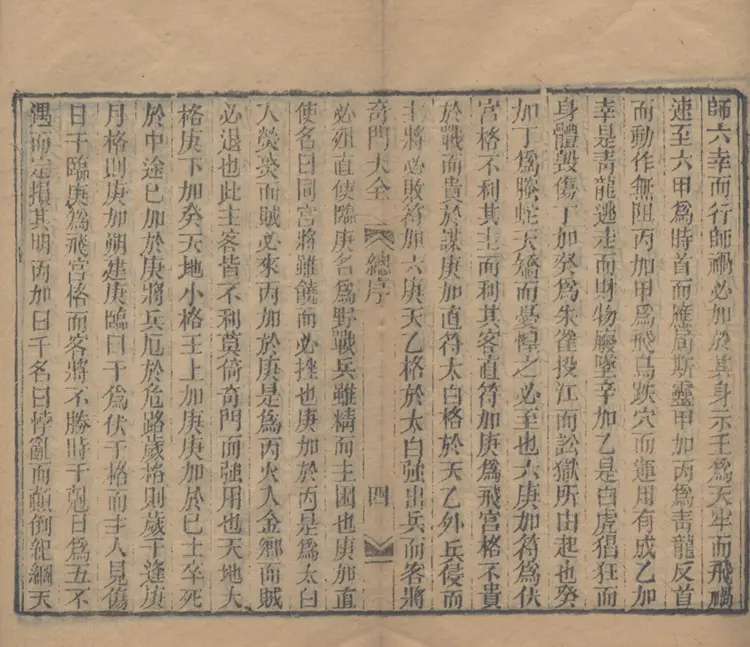 師六幸而行師禍必加於其身示王爲天牢而飛禍
速至六甲爲時首而應高斯靈甲加丙爲青龍反首
而動作無阻丙加甲爲飛鳥跌穴而運用有成乙加
幸是青龍逃走而財物廢墜辛加乙是白虎猖狂而
身體毀傷丁加癸爲朱雀投江而訟獄所由起也癸
加丁爲騰蛇夭矯而憂惮之必至也六庚加符爲伏
宫格不利其主而利其客直符加庚爲飛宫格不貴
於戰而貴於謀庚加直符太白格於天乙外兵侵而
主將必敗符加六庚天乙格於太白強出兵而客將
奇門大全 總序 四
必殂直使臨庚名爲野戰兵雖精而主困也庚加直
使名曰同宫將雖饒而必挫也庚加於丙是爲太白
入熒惑而賊必來丙加於庚是爲丙火入金鄉而賊
必退也此主客皆不利莫倚奇門而強用也天地大
格庚下加癸天地小格王上加庚庚加於巳士卒死
於中途巳加於庚將兵厄於危路歲格則歲干逢庚
月格則庚加朔建庚臨日干爲伏干格而主人見傷
日干臨庚爲飛宫格而客將不勝時干剋日爲五不
遇而定損其明丙加日千名曰悖亂而顛倒紀綱天